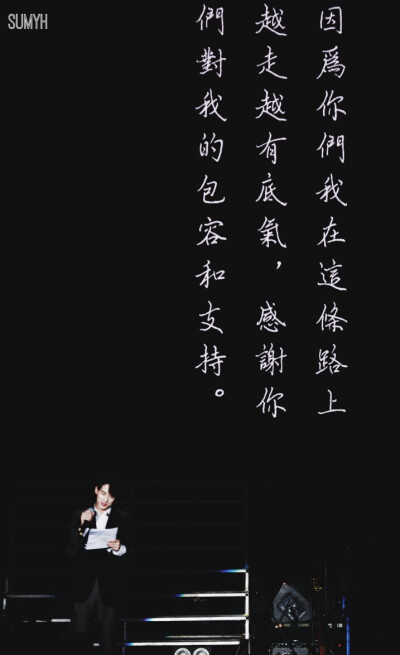 SUMYH
因為你們我在這條路上
越走越有底氣，感謝你
們對我的包容和支持。